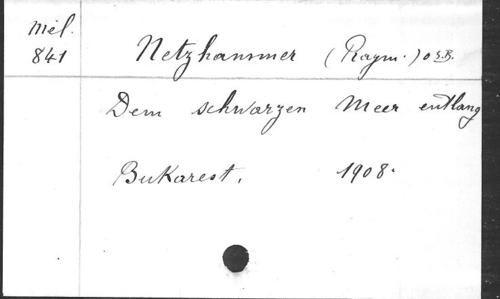 Mél.
841
Netzhammer (Raym.) O.S.B.
Dem schwarzen Meer entlang
Bukarest, 1908.